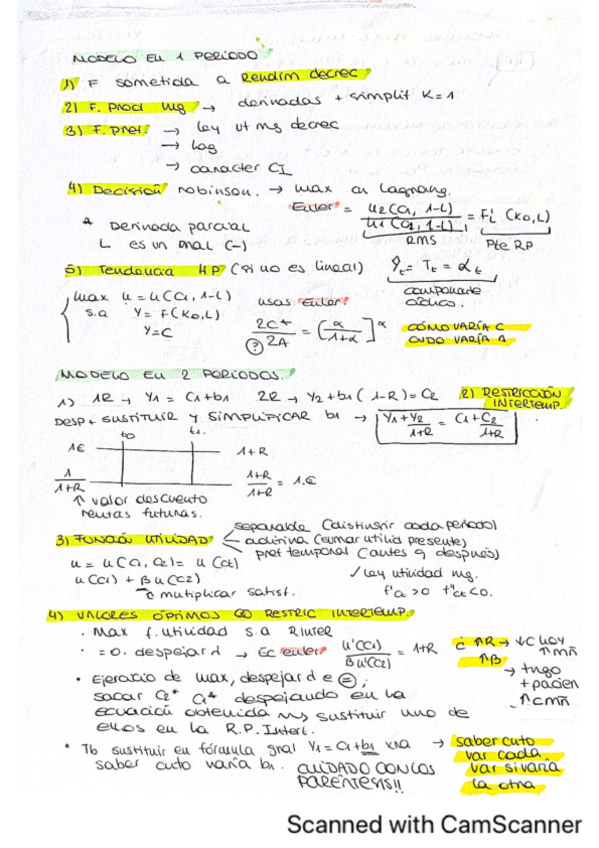 MODELO EN 1 PERÍODO
1) F sometida a Rendim decrec
2) F. Prod mg → derivadas + simplif K=1
3) F. pref. → ley ut mg decrec
→ log
→ caracter CI
4) Decisión robinson. → max en Lagrang.
Euler = U2(C1, 1-L) / U1(C1, 1-L) = F'L (K0,L)
RMS
Pte RP
* Derivada parcial
L es un mal (-)
5) Tendencia HP (si no es lineal) Ŷt = Tt = αt
componente cíclico.
max u = u(C1, 1-L)
s.a Y = f(K0,L)
Y=C
usas Euler!
? 2C* / 2A = [α / 1+α]^α
CÓMO VARÍA C
CNDO VARÍA A
MODELO EN 2 PERÍODOS.
1) 1R → Y1 = C1+b1 2R → Y2+b1(1-R)=C2
2) RESTRICCIÓN INTERTEMP.
DESP + SUSTITUIR Y SIMPLIFICAR b1 → Y1+Y2 / 1+R = C1+C2 / 1+R
t0 t1.
1€ 1+R
1 / 1+R 1+R / 1+R = 1.€
↑ valor descuento
rentas futuras.
3) FUNCIÓN UTILIDAD
separable (distinguir cada período)
aditiva (sumar utilid presente)
pref temporal (antes q después)
u = u(C1, C2) = u(Ct)
u(C1) + βu(C2)
→ multiplicar satisf.
✓ ley utilidad mg.
f'Ct >0 f''Ct <0.
4) VALORES ÓPTIMOS CO RESTRIC INTERTEMP.
. Max f. utilidad s.a RInter
. = 0. despejar λ → Ec euler U'(C1) / βU'(C2) = 1+R
¿ ↑R → ↓C hoy
↑ mñ
↑β → tngo
+ pacien
↑ C mñ
• Ejercicio de max, despejar λ e =;
sacar C2* C1* despejando en la
ecuación obtenida → sustituir uno de
ellos en la R.P. Intert.
• Tb sustituir en fórmula gnal Y1 = C1+b1 xra
saber cuto varía b1. CUIDADO CON LOS
PARÉNTESIS!!
→ saber cuto
var cada.
var si varía
la otra
Scanned with CamScanner